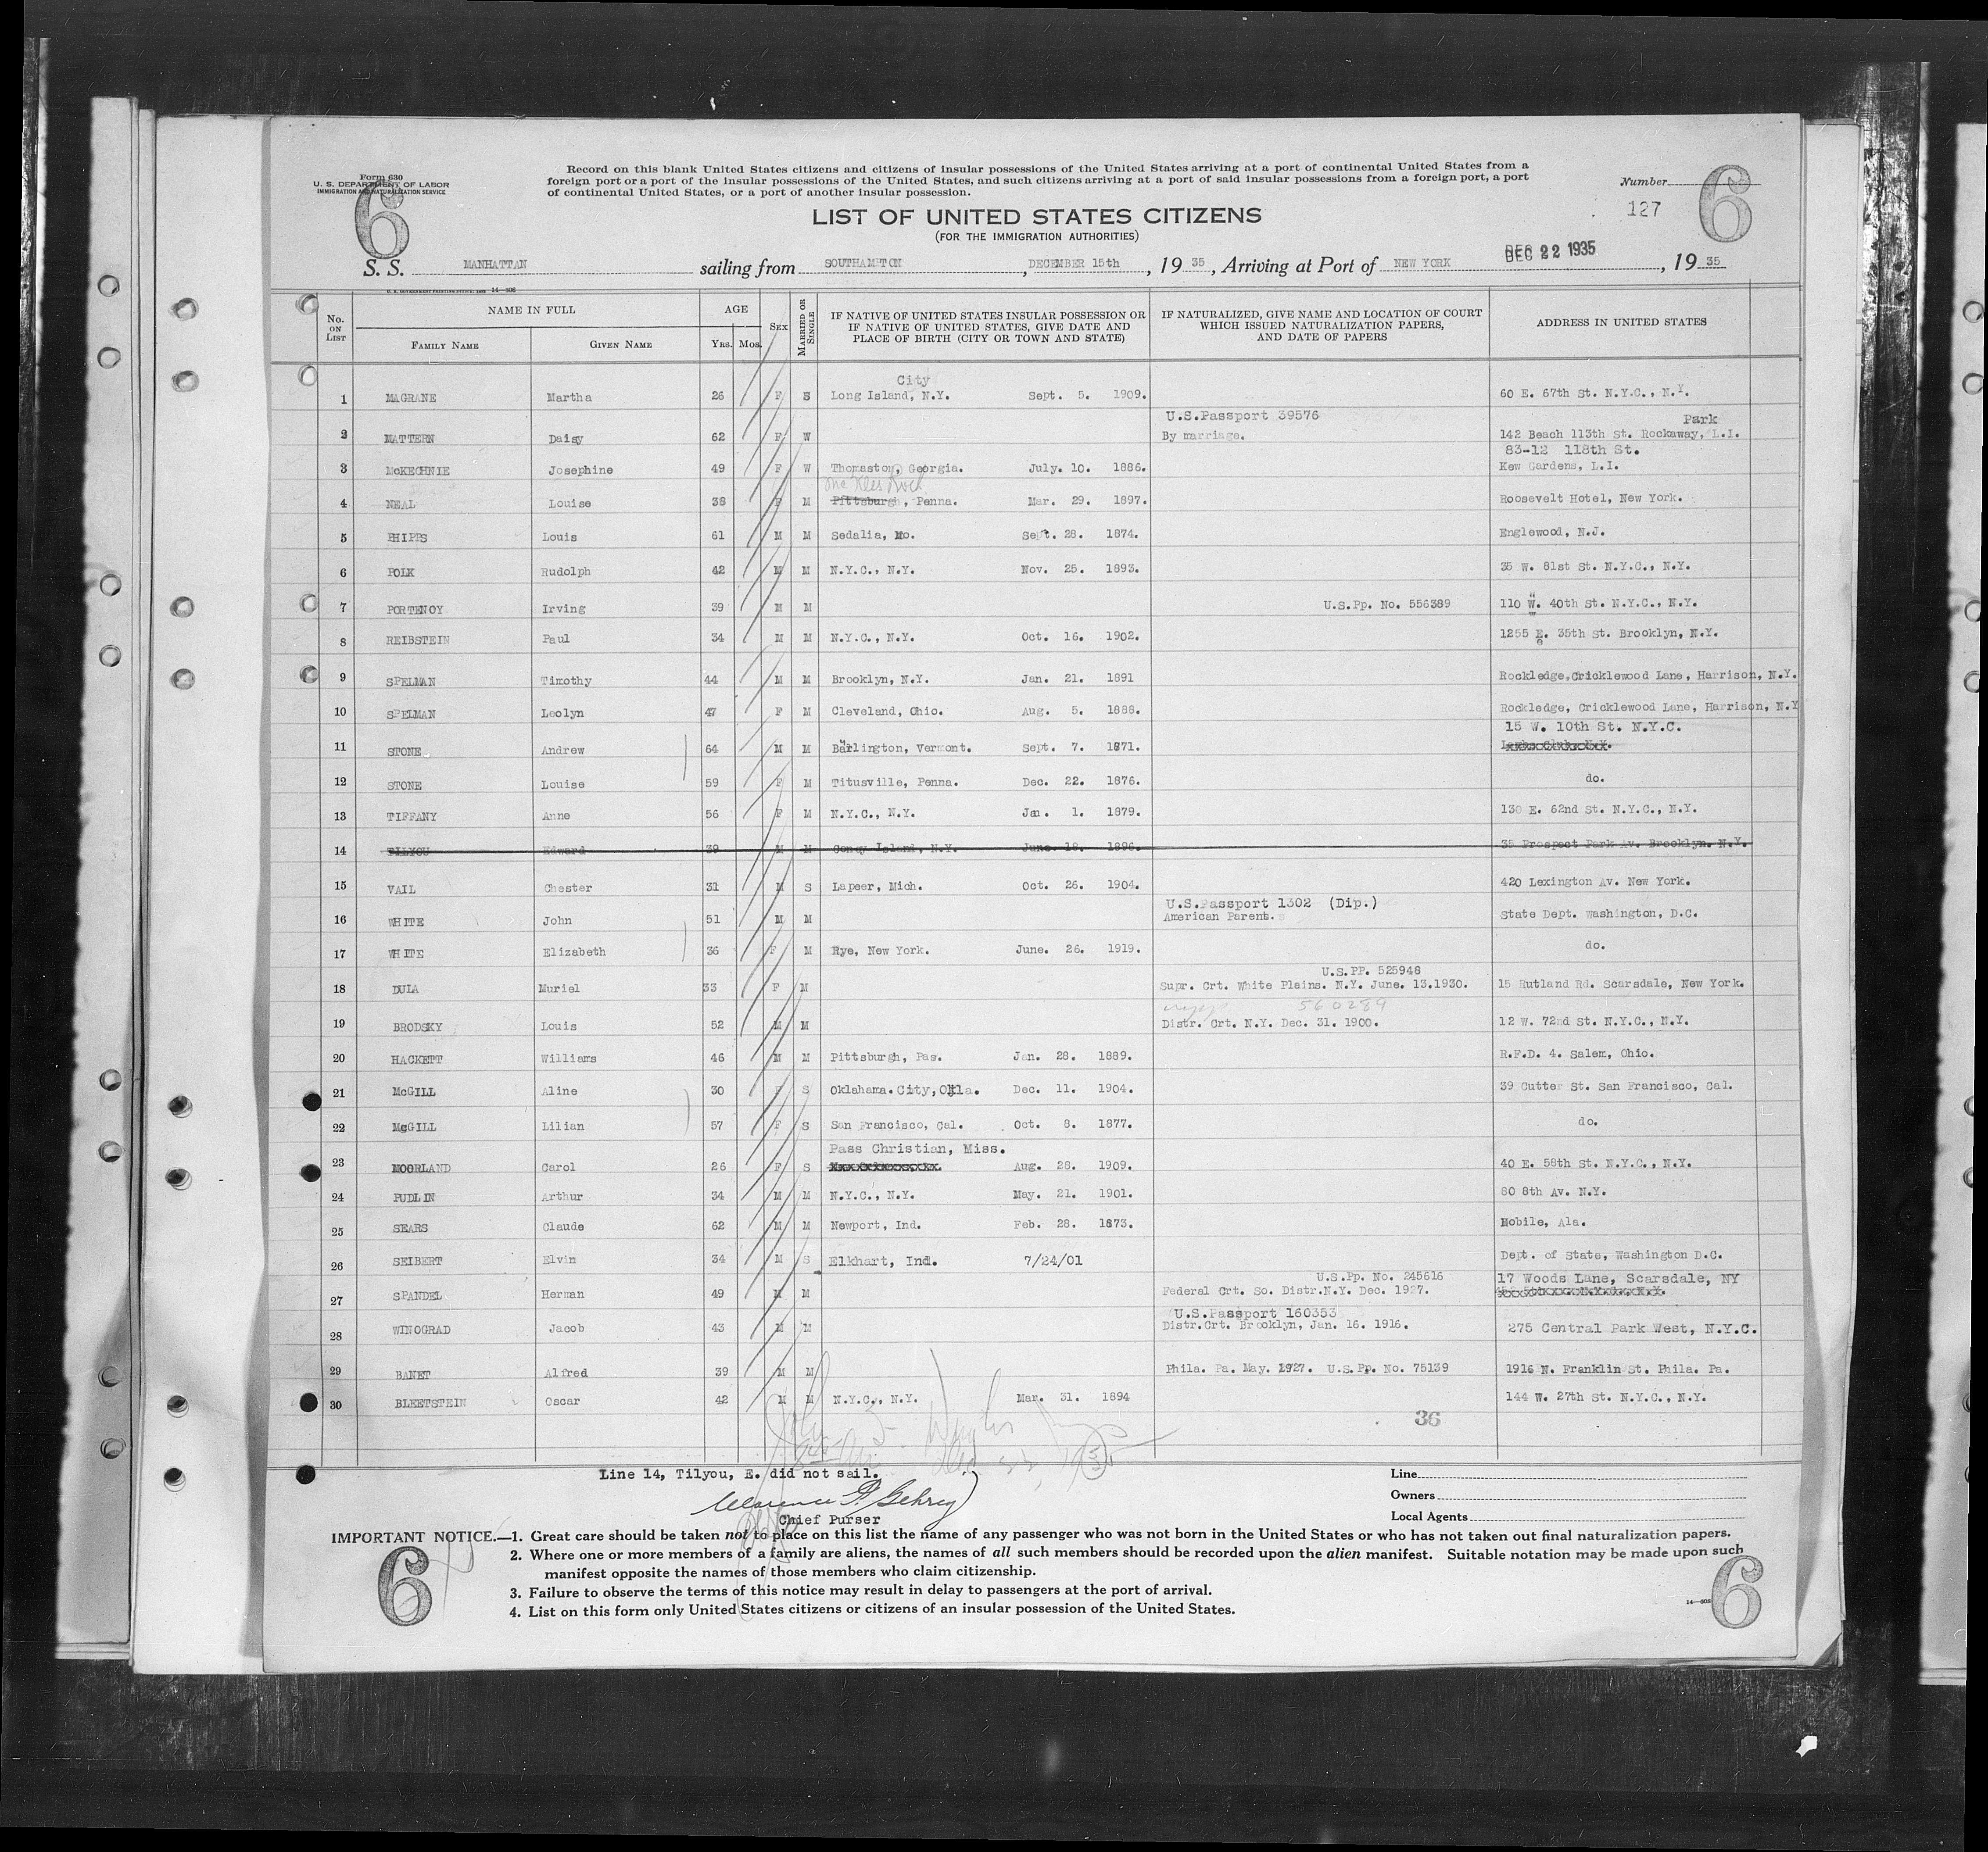 Form 630
U. S. DEPARTMENT OF LABOR
IMMIGRATION AND NATURALIZATION SERVICE
6
Record on this blank United States citizens and citizens of insular possessions of the United States arriving at a port of continental United States from a
foreign port or a port of the insular possessions of the United States, and such citizens arriving at a port of said insular possessions from a foreign port, a port
of continental United States, or a port of another insular possession.
Number
127
6
LIST OF UNITED STATES CITIZENS
(FOR THE IMMIGRATION AUTHORITIES)
S. S. MANHATTAN sailing from SOUTHAMPTON, DECEMBER 15th, 19 35, Arriving at Port of NEW YORK DEC 22 1935, 19 35
No. ON LIST NAME IN FULL FAMILY NAME GIVEN NAME AGE YRS. MOS. SEX MARRIED OR SINGLE
IF NATIVE OF UNITED STATES INSULAR POSSESSION OR
IF NATIVE OF UNITED STATES, GIVE DATE AND
PLACE OF BIRTH (CITY OR TOWN AND STATE)
IF NATURALIZED, GIVE NAME AND LOCATION OF COURT
WHICH ISSUED NATURALIZATION PAPERS,
AND DATE OF PAPERS
ADDRESS IN UNITED STATES
City
1 MAGRANE Martha 26 F S Long Island, N.Y. Sept. 5. 1909. 60 E. 67th St. N.Y.C., N.Y.
U.S.Passport 39576 Park
2 MATTERN Daisy 62 F W By marriage. 142 Beach 113th St. Rockaway, L.I.
83-12 118th St.
3 McKECHNIE Josephine 49 F W Thomaston, Georgia. July. 10. 1886. Kew Gardens, L.I.
Mc Kees Rock
4 NEAL Louise 38 F M Pittsburgh, Penna. Mar. 29. 1897. Roosevelt Hotel, New York.
5 PHIPPS Louis 61 M M Sedalia, Mo. Sept. 28. 1874. Englewood, N.J.
6 POLK Rudolph 42 M M N.Y.C., N.Y. Nov. 25. 1893. 35 W. 81st St. N.Y.C., N.Y.
7 PORTENOY Irving 39 M M U.S.Pp. No. 556389 110 W. 40th St. N.Y.C., N.Y.
8 REIBSTEIN Paul 34 M M N.Y.C., N.Y. Oct. 16. 1902. 1255 E. 35th St. Brooklyn, N.Y.
9 SPELMAN Timothy 44 M M Brooklyn, N.Y. Jan. 21. 1891 Rockledge, Cricklewood Lane, Harrison, N.Y.
10 SPELMAN Leolyn 47 F M Cleveland, Ohio. Aug. 5. 1888. Rockledge, Cricklewood Lane, Harrison, N.Y
15 W. 10th St. N.Y.C.
11 STONE Andrew 64 M M Burlington, Vermont. Sept. 7. 1871.
12 STONE Louise 59 F M Titusville, Penna. Dec. 22. 1876. do.
13 TIFFANY Anne 56 F M N.Y.C., N.Y. Jan. 1. 1879. 130 E. 62nd St. N.Y.C., N.Y.
14 TILYOU Edward 39 M M Coney Island, N.Y. June. 18. 1896. 35 Prospect Park Av. Brooklyn. N.Y.
15 VAIL Chester 31 M S Lapeer, Mich. Oct. 26. 1904. 420 Lexington Av. New York.
U.S.Passport 1302 (Dip.)
16 WHITE John 51 M M American Parent. State Dept. Washington, D.C.
17 WHITE Elizabeth 36 F M Rye, New York. June. 26. 1919. do.
U.S.PP. 525948
18 DULA Muriel 33 F M Supr. Crt. White Plains. N.Y. June. 13.1930. 15 Rutland Rd. Scarsdale, New York.
560284
19 BRODSKY Louis 52 M M Distr. Crt. N.Y. Dec. 31. 1900. 12 W. 72nd St. N.Y.C., N.Y.
20 HACKETT Williams 46 M M Pittsburgh, Pas. Jan. 28. 1889. R.F.D. 4. Salem, Ohio.
21 McGILL Aline 30 F S Oklahoma. City, Okla. Dec. 11. 1904. 39 Cutter St. San Francisco, Cal.
22 McGILL Lilian 57 F S San Francisco, Cal. Oct. 8. 1877. do.
Pass Christian, Miss.
23 MOORLAND Carol 26 F S Aug. 28. 1909. 40 E. 58th St. N.Y.C., N.Y.
24 PUDLIN Arthur 34 M M N.Y.C., N.Y. May. 21. 1901. 80 8th Av. N.Y.
25 SEARS Claude 62 M M Newport, Ind. Feb. 28. 1873. Mobile, Ala.
26 SEIBERT Elvin 34 M S Elkhart, Ind. 7/24/01 Dept. of State, Washington D.C.
U.S.Pp. No. 245616 17 Woods Lane, Scarsdale, NY
27 SPANDEL Herman 49 M M Federal Crt. So. Distr.N.Y. Dec. 1927.
U.S.Passport 160353
28 WINOGRAD Jacob 43 M M Distr.Crt. Brooklyn, Jan. 16. 1916. 275 Central Park West, N.Y.C.
29 BANET Alfred 39 M M Phila. Pa. May. 1927. U.S.Pp. No. 75139 1916 N. Franklin St. Phila. Pa.
30 BLEETSTEIN Oscar 42 M M N.Y.C., N.Y. Mar. 31. 1894 144 W. 27th St. N.Y.C., N.Y.
36
Line 14, Tilyou, E. did not sail.
Clarence F. Gehrig
Chief Purser
Line
Owners
Local Agents
IMPORTANT NOTICE.—1. Great care should be taken not to place on this list the name of any passenger who was not born in the United States or who has not taken out final naturalization papers.
2. Where one or more members of a family are aliens, the names of all such members should be recorded upon the alien manifest. Suitable notation may be made upon such
manifest opposite the names of those members who claim citizenship.
3. Failure to observe the terms of this notice may result in delay to passengers at the port of arrival.
4. List on this form only United States citizens or citizens of an insular possession of the United States.
6
6